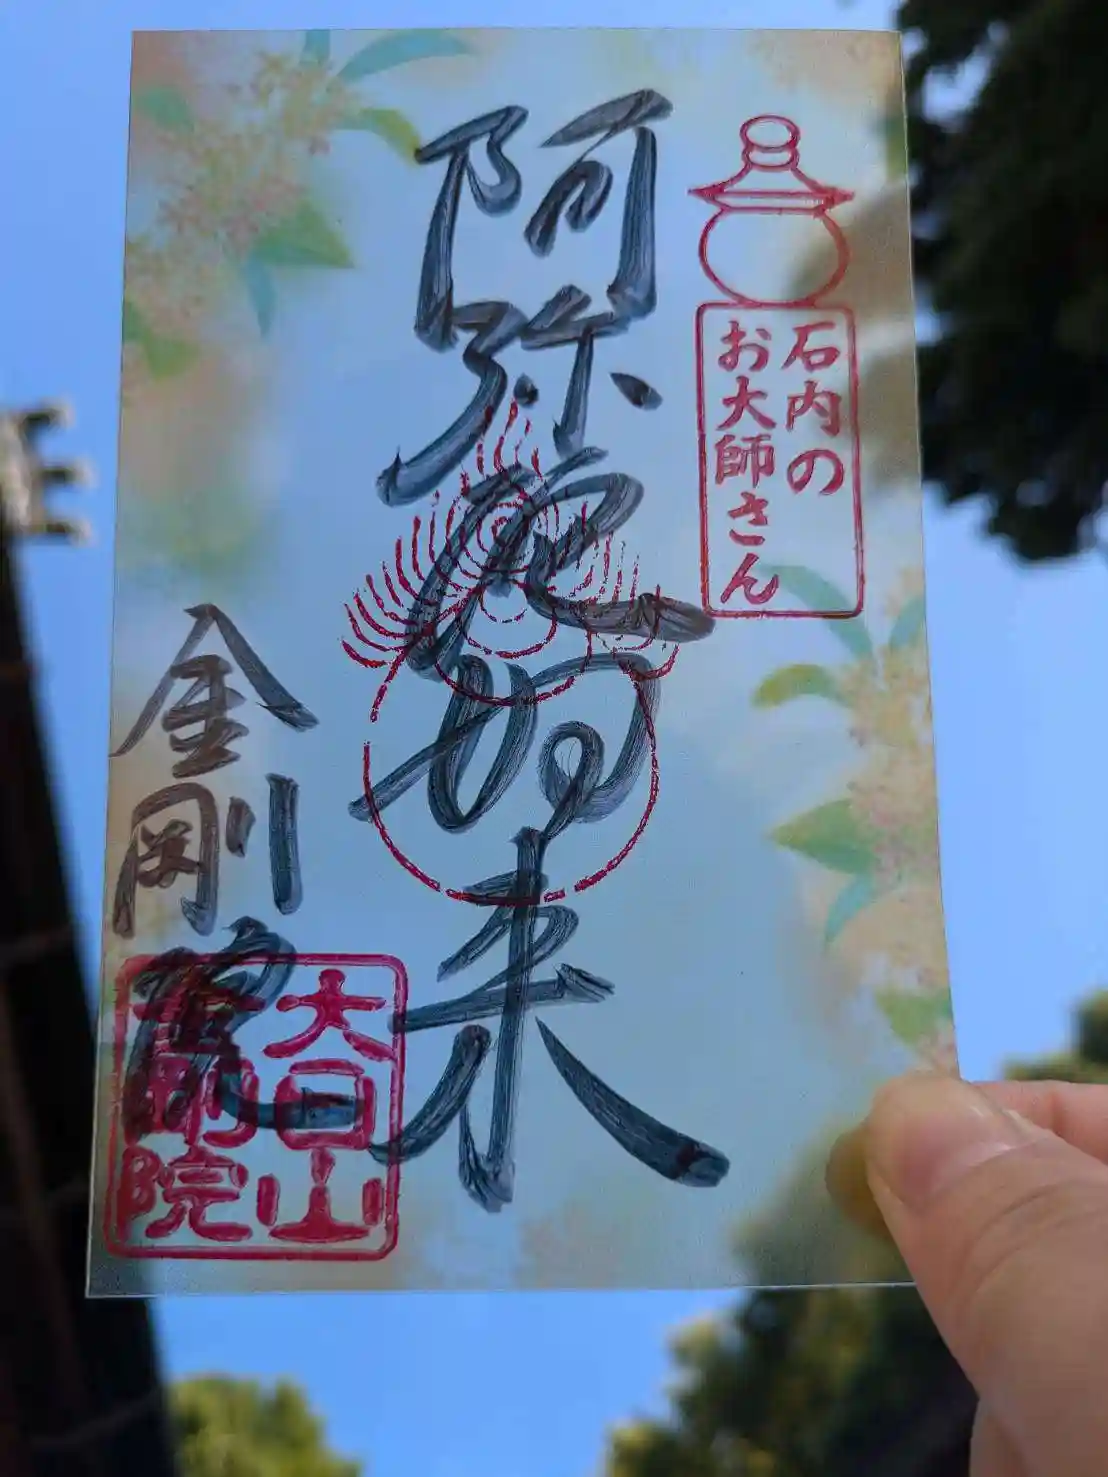 石内の
お大師さん
阿弥陀如来
金剛院
大日山
金剛院